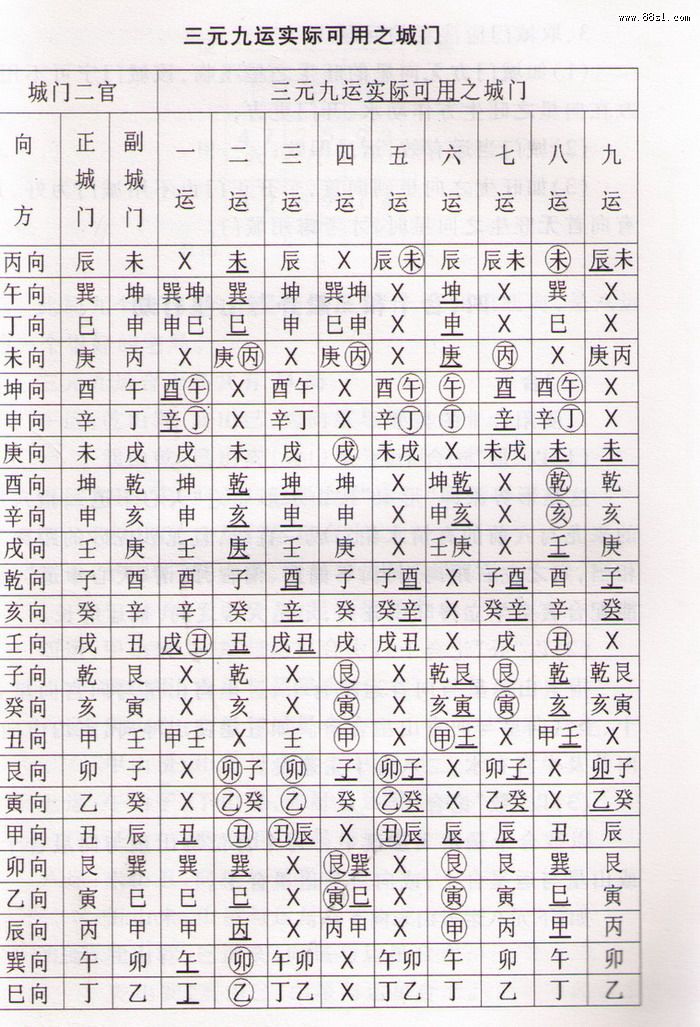 www.88sl.com
三元九运实际可用之城门
城门二官 三元九运实际可用之城门
向方 正城门 副城门 一运 二运 三运 四运 五运 六运 七运 八运 九运
丙向 辰 未 X 未 辰 X 辰未 辰 辰未 未 辰未
午向 巽 坤 巽坤 巽 坤 巽坤 X 坤 X 巽 X
丁向 巳 申 申巳 巳 申 巳申 X 申 X 巳 X
未向 庚 丙 X 庚丙 X 庚丙 X 庚 丙 X 庚丙
坤向 酉 午 酉午 X 酉午 X 酉午 午 酉 酉午 X
申向 辛 丁 辛丁 X 辛丁 X 辛丁 丁 辛 辛丁 X
庚向 未 戌 戌 未 戌 戌 未戌 X 未戌 未 未
酉向 坤 乾 坤 乾 坤 坤 X 坤乾 X 乾 乾
辛向 申 亥 申 亥 申 申 X 申亥 X 亥 亥
戌向 壬 庚 壬 庚 壬 庚 X 壬庚 X 壬 庚
乾向 子 酉 酉 子 酉 子 子酉 X 子酉 酉 子
亥向 癸 辛 辛 癸 辛 癸 癸辛 X 癸辛 辛 癸
壬向 戌 丑 戌丑 丑 戌丑 戌 戌丑 X 戌 丑 X
子向 乾 艮 X 乾 X 艮 X 乾艮 艮 乾 乾艮
癸向 亥 寅 X 亥 X 寅 X 亥寅 寅 亥 亥寅
丑向 甲 壬 甲壬 X 壬 甲 X 甲壬 X 甲壬 X
艮向 卯 子 X 卯子 卯 子 卯子 X 卯子 X 卯子
寅向 乙 癸 X 乙癸 乙 癸 乙癸 X 乙癸 X 乙癸
甲向 丑 辰 丑 丑 丑辰 X 丑辰 辰 辰 丑 辰
卯向 艮 巽 巽 巽 X 艮巽 X 艮 艮 巽 艮
乙向 寅 巳 巳 巳 X 寅巳 X 寅 寅 巳 寅
辰向 丙 甲 甲 丙 X 丙甲 X 甲 丙 甲 丙
巽向 午 卯 午 卯 午卯 X 午卯 午 卯 午 卯
巳向 丁 乙 丁 乙 丁乙 X 丁乙 丁 乙 丁 乙